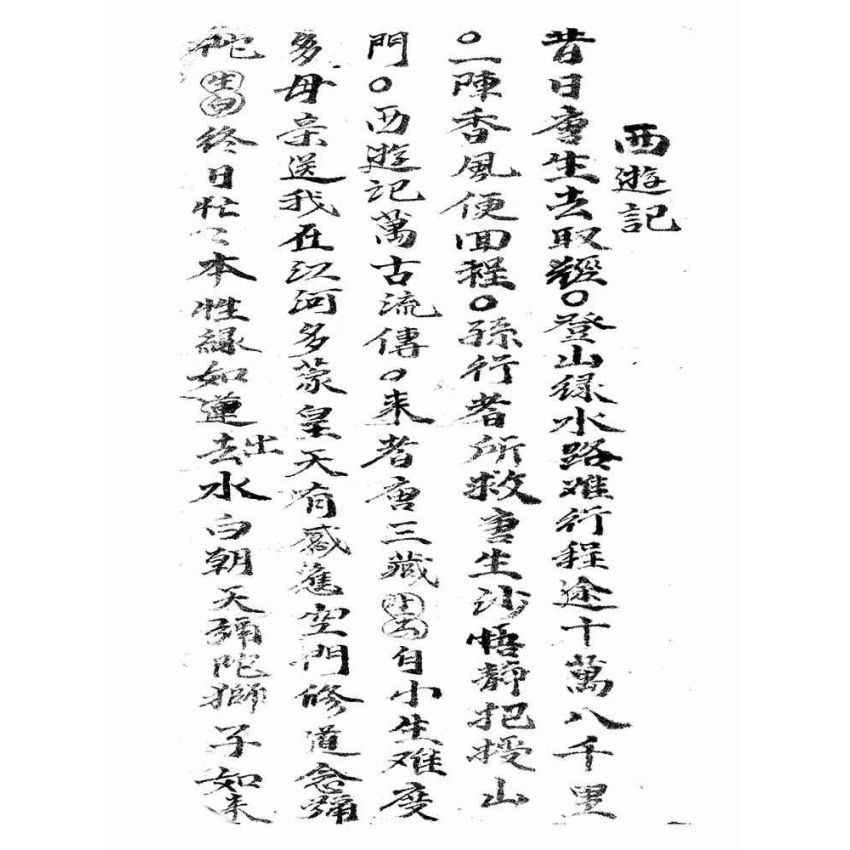 西遊記
昔日唐生去取經○登山綠水路难行程途十萬八千里
○一陳香風便回程○孫行者所救唐生沙悟靜把授山
門○西遊記萬古流傳○来者唐三藏生白自小生难度
多母亲送我在江河多蒙皇天有感應空門修道念彌
佗生白終日忙〻本性緣如蓮去出水白朝天彌陀獅子如来